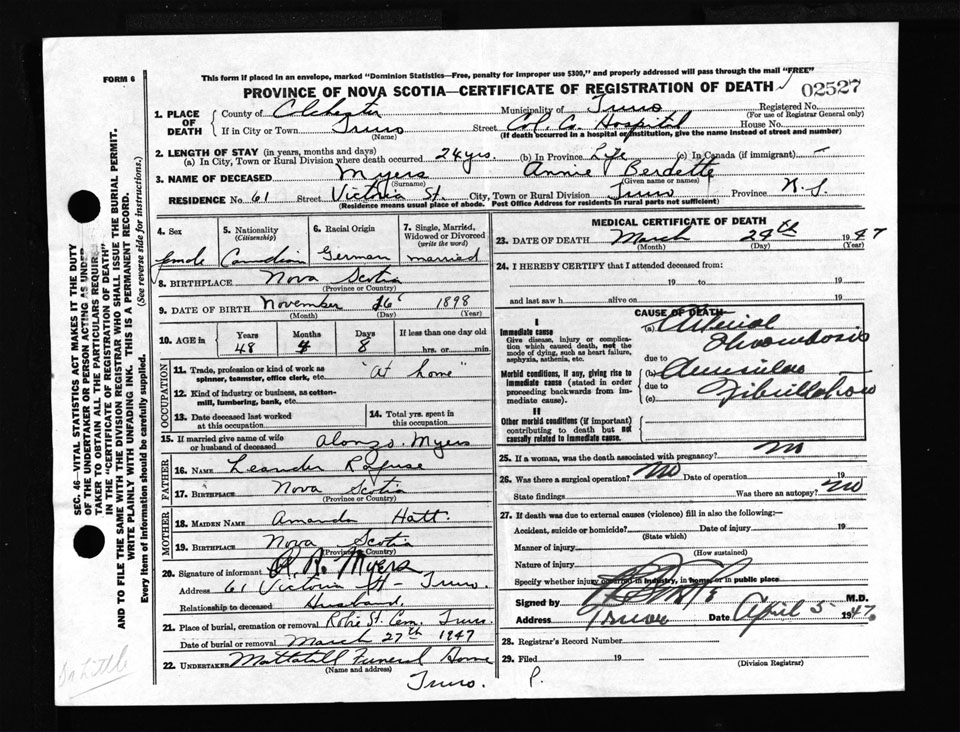 FORM 6
This form if placed in an envelope, marked "Dominion Statistics—Free, penalty for improper use $300," and properly addressed will pass through the mail "FREE"
PROVINCE OF NOVA SCOTIA—CERTIFICATE OF REGISTRATION OF DEATH 02527
1. PLACE OF DEATH County of Colchester Municipality of Truro Registered No.
(For use of Registrar General only)
If in City or Town Truro Street Col. Co. Hospital House No.
(Name) (If death occurred in a hospital or institution, give the name instead of street and number)
2. LENGTH OF STAY (in years, months and days)
(a) In City, Town or Rural Division where death occurred 24 yrs. (b) In Province Life (c) In Canada (if immigrant) —
3. NAME OF DECEASED Myers Annie Berdette
(Surname) (Given name or names)
RESIDENCE No. 61 Street Victoria St. City, Town or Rural Division Truro Province N.S.
(Residence means usual place of abode. Post Office Address for residents in rural parts not sufficient)
4. Sex 5. Nationality (Citizenship) 6. Racial Origin 7. Single, Married, Widowed or Divorced (write the word)
female Canadian German married
8. BIRTHPLACE Nova Scotia
(Province or Country)
9. DATE OF BIRTH November 16 1898
(Month) (Day) (Year)
10. AGE in Years Months Days If less than one day old
48 4 8 hrs. or min.
OCCUPATION
11. Trade, profession or kind of work as spinner, teamster, office clerk, etc. "At home"
12. Kind of industry or business, as cotton-mill, lumbering, bank, etc.
13. Date deceased last worked at this occupation 14. Total yrs. spent in this occupation
15. If married give name of wife or husband of deceased Alonzo Myers
FATHER
16. NAME Leander Rafuse
17. BIRTHPLACE Nova Scotia
(Province or Country)
MOTHER
18. MAIDEN NAME Amanda Hatt
19. BIRTHPLACE Nova Scotia
(Province or Country)
20. Signature of informant Myers
Address 61 Victoria St - Truro.
Relationship to deceased Husband.
21. Place of burial, cremation or removal Robie St. Cem. Truro.
Date of burial or removal March 27th 1947
22. UNDERTAKER Mattatall Funeral Home
(Name and address)
Truro.
MEDICAL CERTIFICATE OF DEATH
23. DATE OF DEATH March 24th 1947
(Month) (Day) (Year)
24. I HEREBY CERTIFY that I attended deceased from:
19 to 19
and last saw h alive on 19
CAUSE OF DEATH
I
Immediate cause
Give disease, injury or complication which caused death, not the mode of dying, such as heart failure, asphyxia, asthenia, etc.
(a) Arterial Thrombosis
due to
Morbid conditions, if any, giving rise to immediate cause (stated in order proceeding backwards from immediate cause).
(b) Auricular
due to
(c) Fibrillation
II
Other morbid conditions (if important) contributing to death but not causally related to immediate cause.
25. If a woman, was the death associated with pregnancy? no
26. Was there a surgical operation? no Date of operation 19
State findings Was there an autopsy? no
27. If death was due to external causes (violence) fill in also the following:—
Accident, suicide or homicide? Date of injury 19
(State which)
Manner of injury
(How sustained)
Nature of injury
Specify whether injury occurred in industry, in home, or in public place
Signed by M.D.
Address Truro Date April 5 1947
28. Registrar's Record Number
29. Filed 19
(Division Registrar)
P.
SEC. 46—VITAL STATISTICS ACT MAKES IT THE DUTY
OF THE UNDERTAKER OR PERSON ACTING AS UNDER-
TAKER TO OBTAIN ALL THE PARTICULARS REQUIRED
IN THE "CERTIFICATE OF REGISTRATION OF DEATH"
AND TO FILE THE SAME WITH THE DIVISION REGISTRAR WHO SHALL ISSUE THE BURIAL PERMIT.
WRITE PLAINLY WITH UNFADING INK. THIS IS A PERMANENT RECORD.
Every item of information should be carefully supplied. (See reverse side for instructions.)
Dr Little